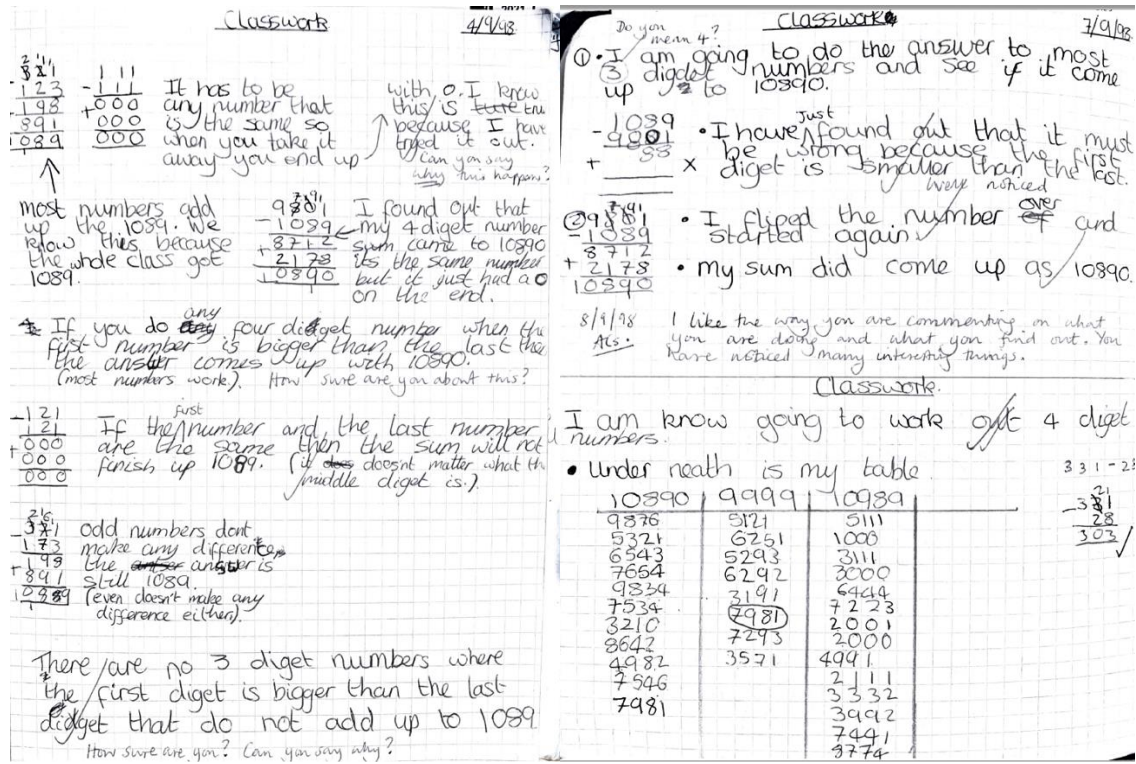 Classwork
4/9/98
321
123
198
891
1089
- 111
000
+ 000
000
It has to be
any number that
is the same so
when you take it
away you end up
with 0. I know
this is true
because I have
tryed it out.
Can you say
why this happens?
most numbers add
up the 1089. We
know this because
the whole class got
1089.
9801
- 1089
8712
+ 2178
10890
I found out that
my 4 diget number
sum came to 10890
its the same number
but it just had a 0
on the end.
If you do any four diget number when the
first number is bigger than the last the
the answer comes up with 10890.
(most numbers work). How sure are you about this?
- 121
121
+ 000
000
000
If the first number and the last number
are the same then the sum will not
finish up 1089. (it doesnt matter what the
middle diget is.)
- 371
173
198
+ 891
1089
odd numbers dont
make any difference,
the answer is
still 1089.
(even doesn't make any
difference either).
There are no 3 diget numbers where
the first diget is bigger than the last
didget that do not add up to 1089
How sure are you? Can you say why?
Classwork
7/9/98
Do you
mean 4?
① • I am going to do the answer to most
3 diget numbers and see if it come
up to 10890.
1089
- 9801
88
+
×
• I have Just found out that it must
be wrong because the first
diget is smaller than the last.
Well noticed
② 9801
- 1089
8712
+ 2178
10890
• I fliped the number over and
started again.
• my sum did come up as 10890.
8/9/98
I like the way you are commenting on what
you are doing and what you find out. You
have noticed many interesting things.
Classwork.
I am know going to work out 4 diget
numbers.
• Under neath is my table
331-28
- 331
28
303
10890 9999 10989
9876 5121 5111
5321 6251 1000
6543 5293 3111
7654 6292 3000
9834 3191 6444
7534 7981 7223
3210 7293 2001
8642 3571 2000
4982 4991
7546 2111
7981 3332
3992
7441
8774